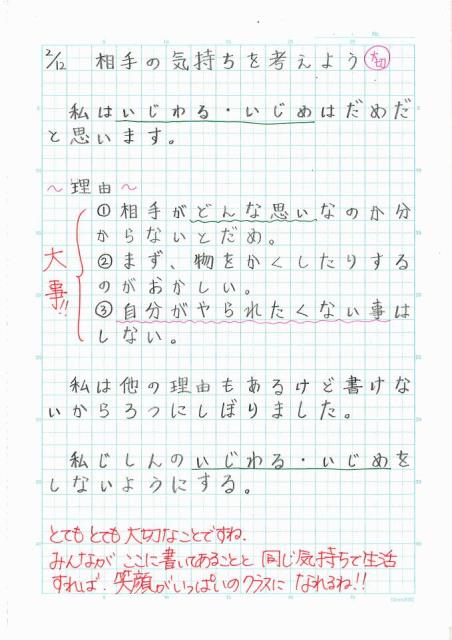 2/12 相手の気持ちを考えよう 大切
私はいじわる・いじめはだめだ
と思います。
〜理由〜
①相手がどんな思いなのか分
からないとだめ。
②まず、物をかくしたりする
のがおかしい。
③自分がやられたくない事は
しない。
大事!!
私は他の理由もあるけど書けな
いから3つにしぼりました。
私じしんのいじわる・いじめを
しないようにする。
とてもとても大切なことですね.
みんなが ここに書いてあることと 同じ気持ちで生活
すれば. 笑顔がいっぱいのクラスに なれるね!!